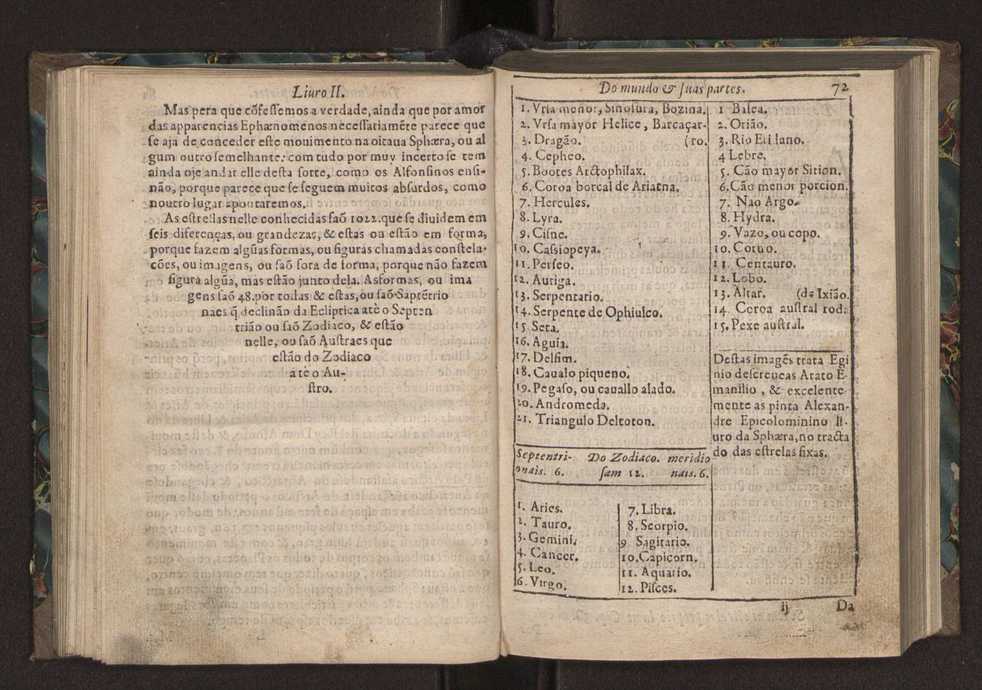 Liuro II.
Mas pera que cõfessemos a verdade, ainda que por amor
das apparencias Ephænomenos necessariamẽte parece que
se aja de conceder este mouimento na oitaua Sphæra, ou al
gum outro semelhante: com tudo por muy incerto se tem
ainda oje andar elle desta sorte, como os Alfonsinos ensi-
não, porque parece que se seguem muitos absurdos, como
noutro lugar apontaremos.
As estrellas nelle conhecidas saõ 1022. que se diuidem em
seis diferenças, ou grandezas, & estas ou estão em forma,
porque fazem algũas formas, ou figuras chamadas constela-
cões, ou imagens, ou saõ fora de forma, porque não fazem
figura algũa, mas estão junto dela. As formas, ou ima
gens saõ 48. por todas & estas, ou saõ Saptẽtrio
naes q̃ declinão da Ecliptica atè o Septen
trião ou saõ Zodiaco, & estão
nelle, ou saõ Austraes que
estão do Zodiaco
atè o Au-
stro.
Do mundo & suas partes. 72
1. Vrsa menor, Sinosura, Bozina.
2. Vrsa mayor Helice, Barcaçar-
3. Dragão. (ro.
4. Cepheo.
5. Bootes Arctophilax.
6. Coroa boreal de Ariatna.
7. Hercules.
8. Lyra.
9. Cisne.
10. Cassiopeya.
11. Perseo.
12. Auriga.
13. Serpentario.
14. Serpente de Ophiulco.
15. Seta.
16. Aguia.
17. Delfim.
18. Caualo piqueno.
19. Pegaso, ou cauallo alado.
20. Andromeda.
21. Triangulo Deltoton.
Septentri- Do Zodiaco. meridio
onais. 6. sam 12. nais. 6.
1. Aries.
2. Tauro.
3. Gemini.
4. Cancer.
5. Leo.
6. Virgo.
7. Libra.
8. Scorpio.
9 Sagitario.
10. Capicorn.
11. Aquario.
12. Pisces.
1 Balea.
2. Orião.
3. Rio Eri lano.
4 Lebre.
5. Cão mayor Sirion.
6. Cão menor porcion.
7. Nao Argo.
8. Hydra.
9. Vazo, ou copo.
10. Coruo.
11. Centauro.
12. Lobo.
13. Altar. (de Ixião.
14. Coroa austral rod:
15. Pexe austral.
Destas imagẽs trata Egi
nio descreueas Arato E
manilio, & excelente-
mente as pinta Alexan-
dre Epicolominino li-
uro da Sphæra, no tracta
do das estrelas fixas.
ij Da